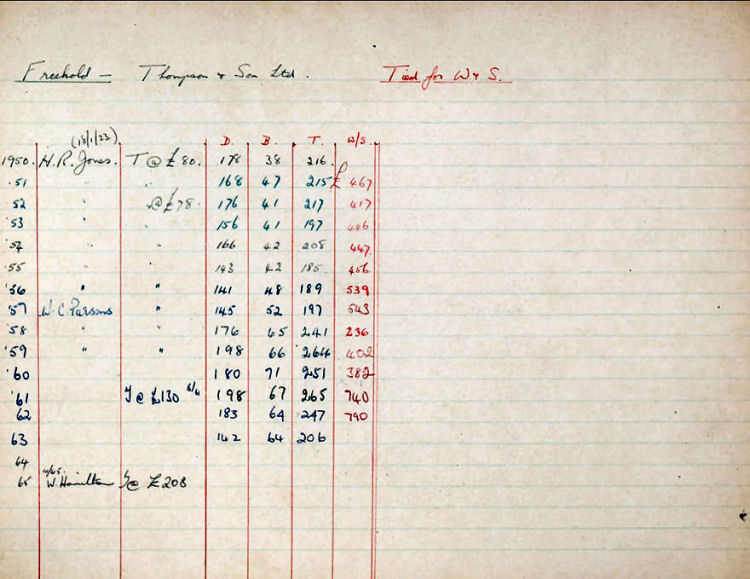 Freehold — Thompson & Son Ltd. Tied for W & S.
(18/1/23) D. B. T. W/S.
1950. H.R. Jones. T @ £80. 178 38 216.
'51 " " 168 47 215 £ 467
'52 " " @ £78. 176 41 217 417
'53 " " 156 41 197 446
'54 " " 166 42 208 447
'55 " " 143 42 185 456
'56 " " 141 48 189 539
'57 W.C. Parsons " 145 52 197 543
'58 " " 176 65 241 236
'59 " " 198 66 264 402
'60 71 251 382
'61 T @ £130 198 67 265 740
62 183 64 247 790
63 142 64 206
64
65 W. Hamilton T @ £208